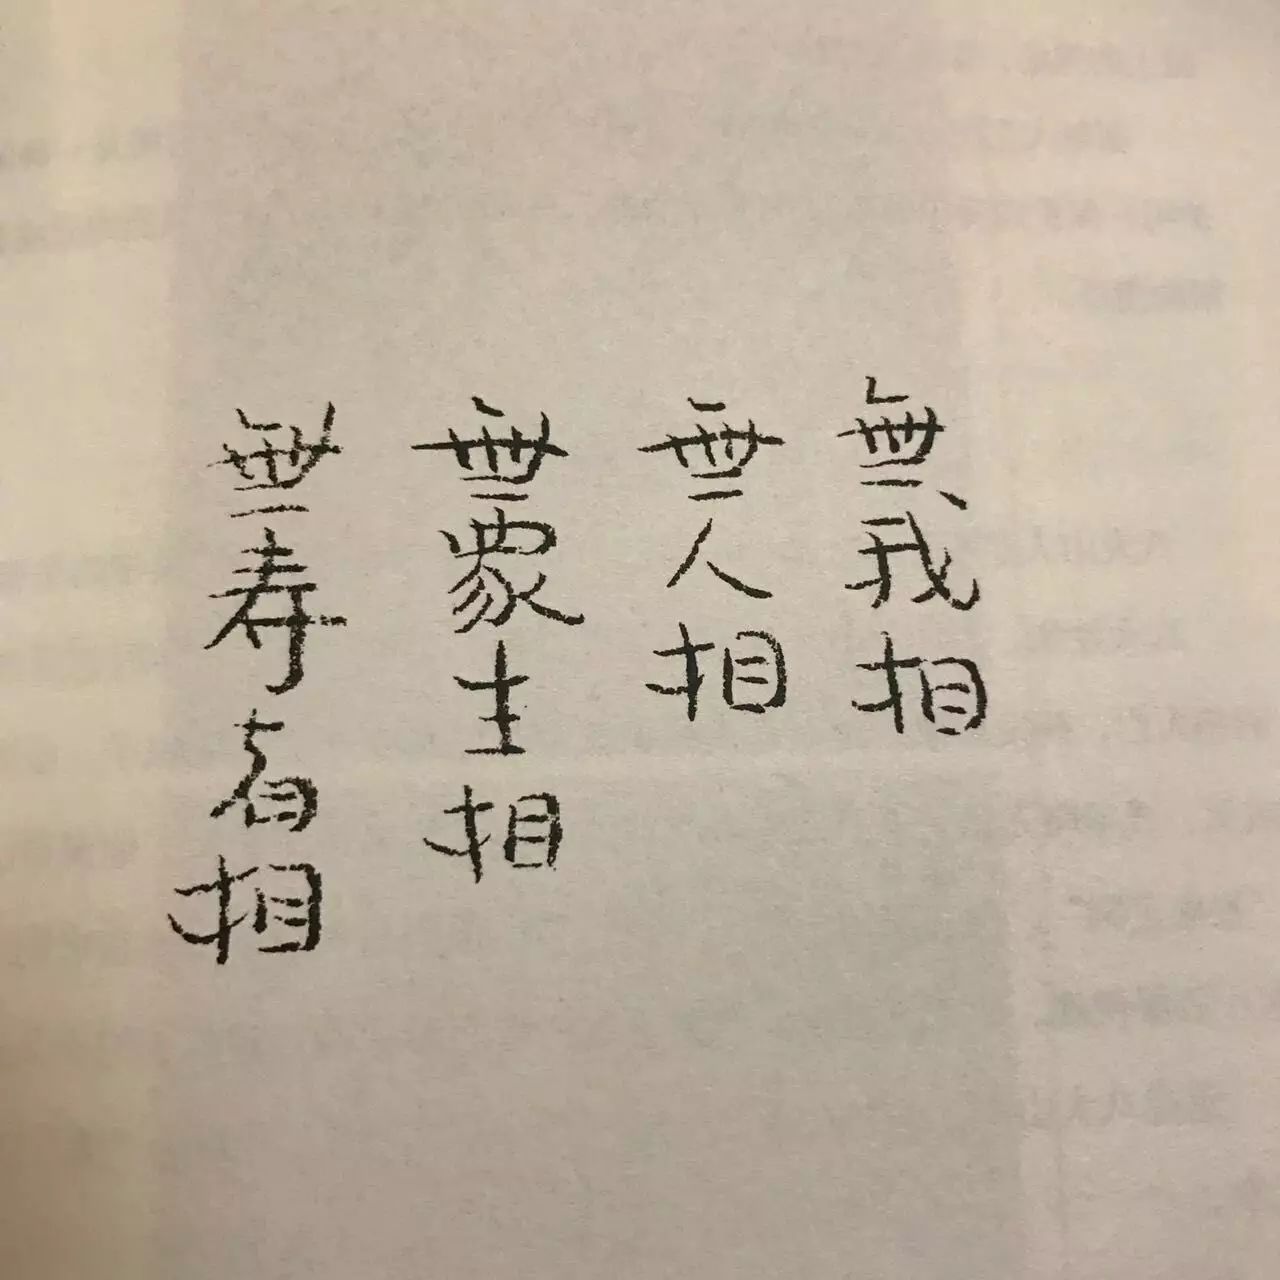 無我相
無人相
無眾生相
無寿者相